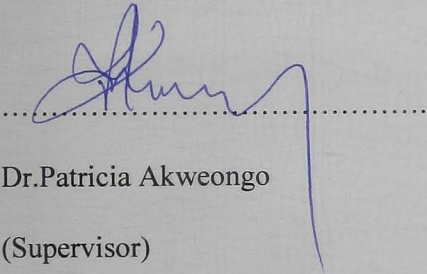 Dr.Patricia Akweongo
(Supervisor)